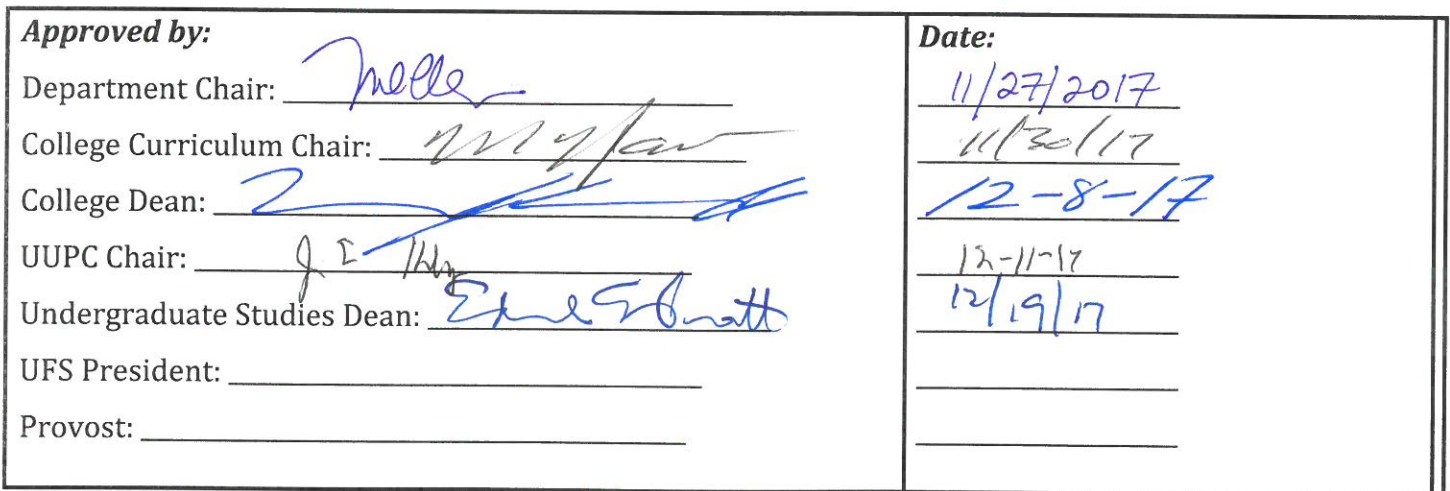 Approved by: Date:
Department Chair: 11/27/2017
College Curriculum Chair: 11/30/17
College Dean: 12-8-17
UUPC Chair: 12-11-17
Undergraduate Studies Dean: 12/19/17
UFS President:
Provost: